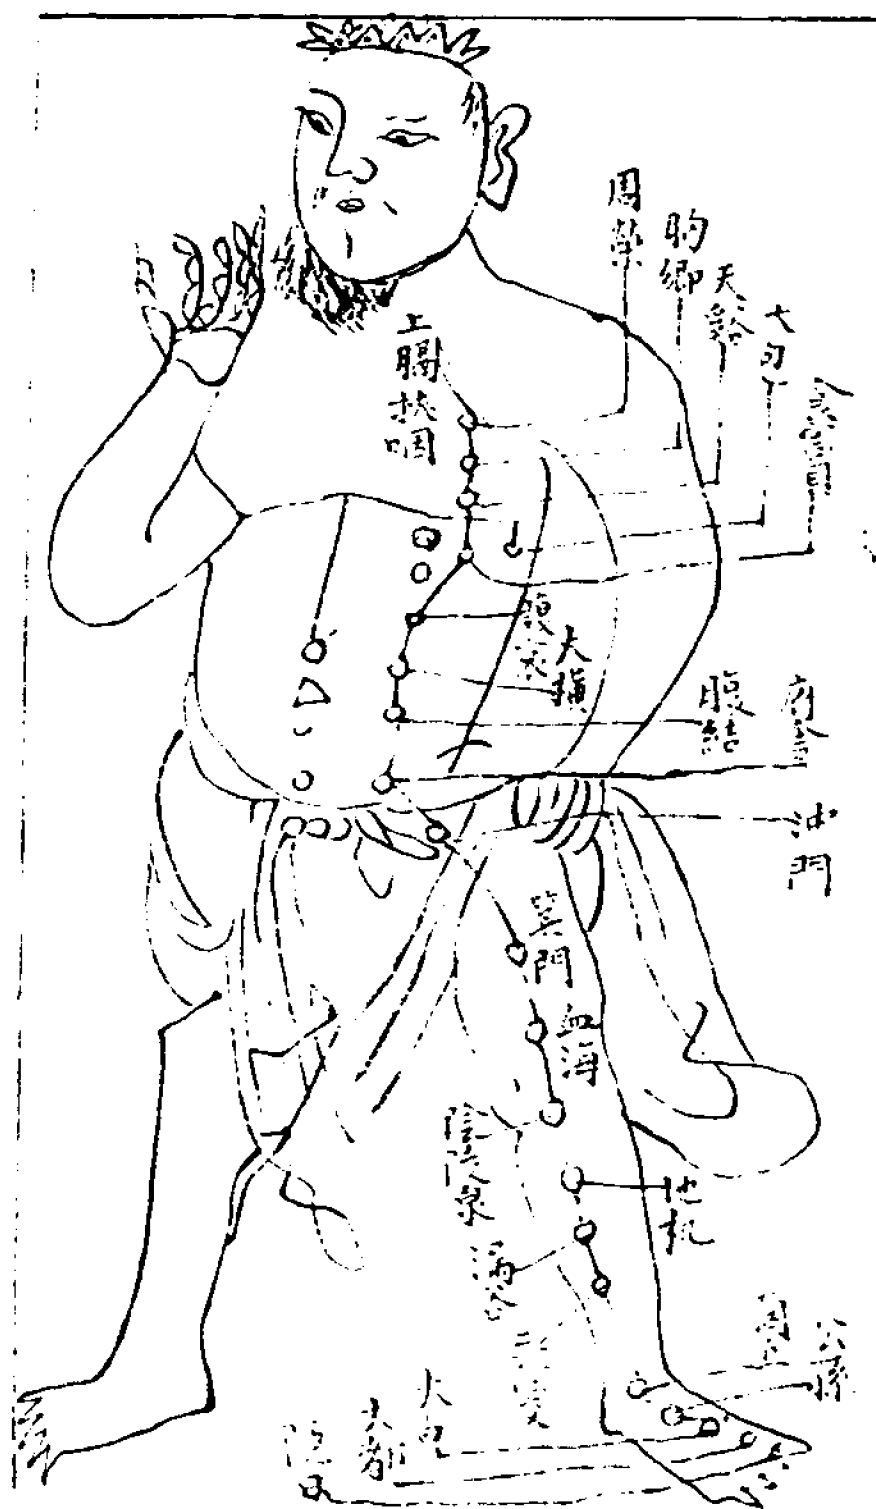 周榮
胸鄉
天谿
大包
食竇
上膈挾咽
腹哀
大橫
腹結
府舍
沖門
箕門
血海
陰陵泉
地机
漏谷
商丘
公孫
大都